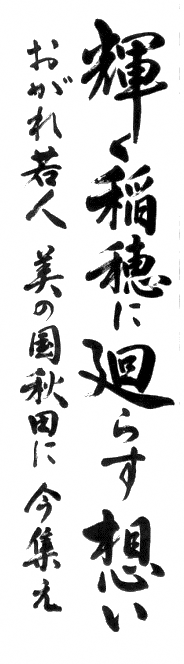 輝く稲穂に廻らす想い
おがれ若人 美の国秋田に 今集え